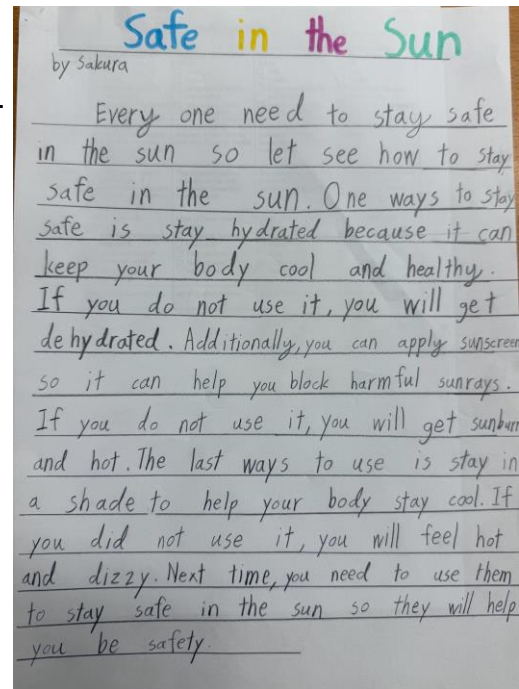 Safe in the Sun
by Sakura
Every one need to stay safe
in the sun so let see how to stay
safe in the sun. One ways to stay
safe is stay hydrated because it can
keep your body cool and healthy.
If you do not use it, you will get
dehydrated. Additionally, you can apply sunscreen
so it can help you block harmful sunrays.
If you do not use it, you will get sunburn
and hot. The last ways to use is stay in
a shade to help your body stay cool. If
you did not use it, you will feel hot
and dizzy. Next time, you need to use them
to stay safe in the sun so they will help
you be safety.